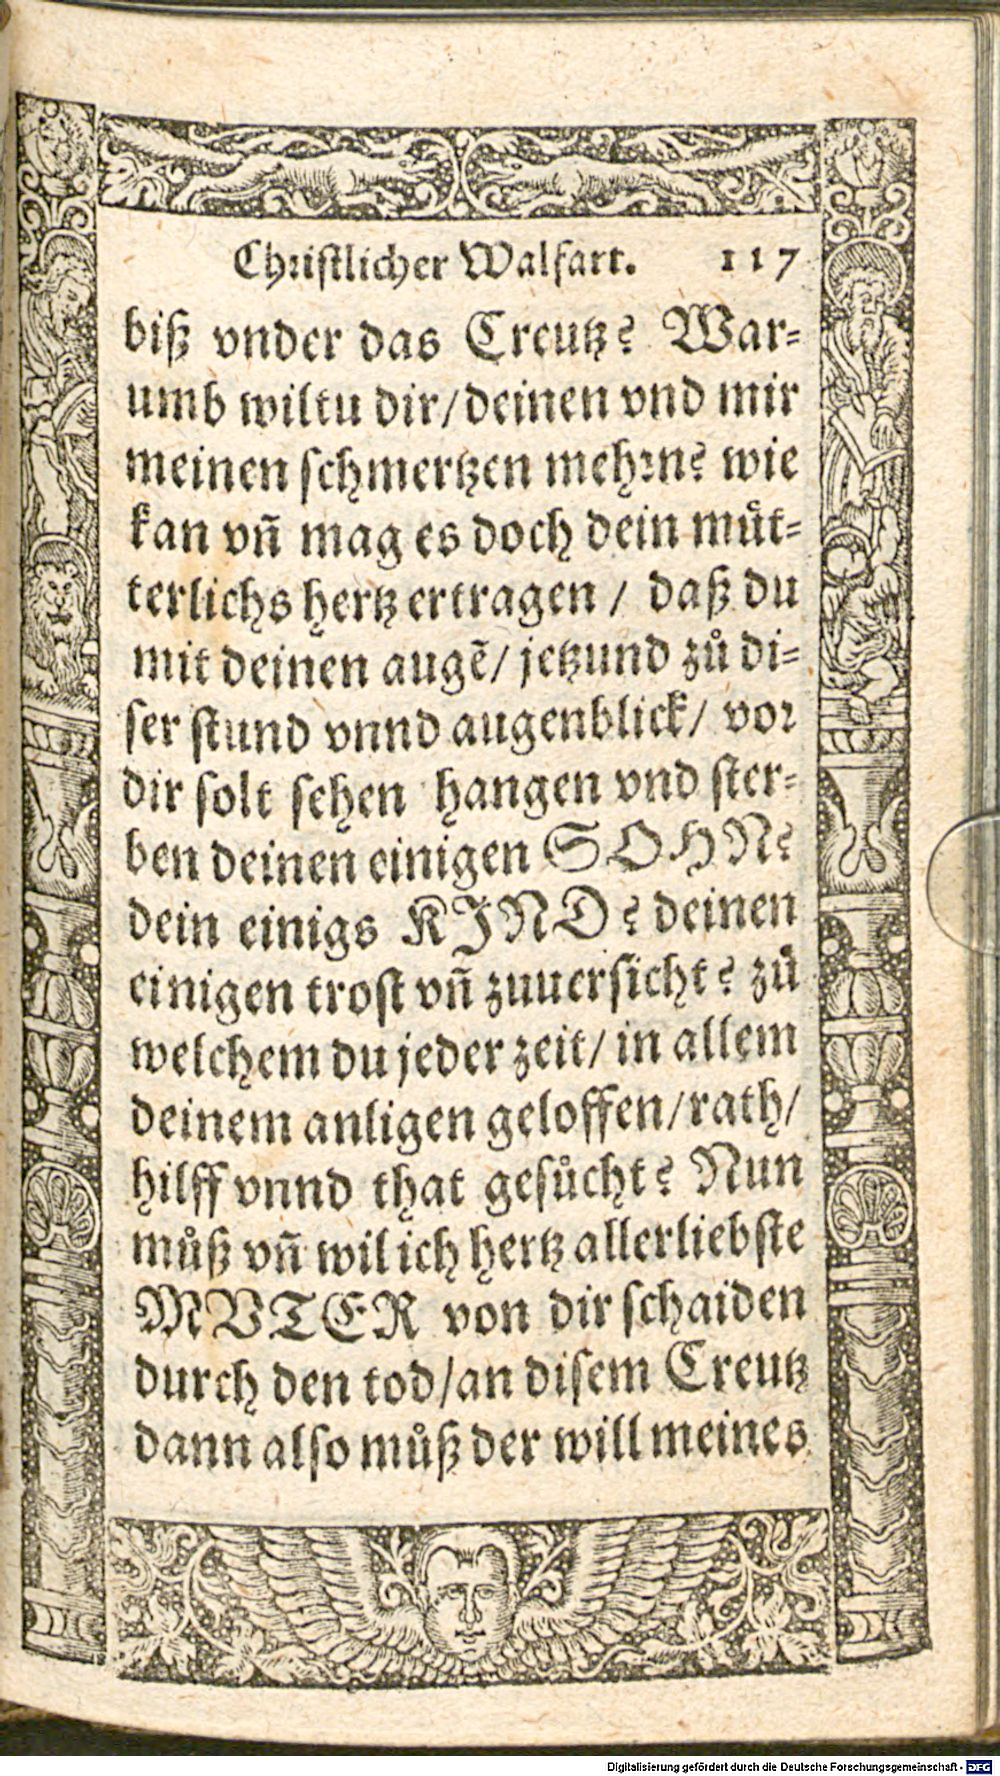 Christlicher Walfart. 117
biß vnder das Creutz? War-
umb wiltu dir/deinen vnd mir
meinen schmertzen mehrn? wie
kan vñ mag es doch dein muͤt-
terlichs hertz ertragen / daß du
mit deinen augẽ/ jetzund zuͦ di-
ser stund vnnd augenblick/ vor
dir solt sehen hangen vnd ster-
ben deinen einigen SOHN?
dein einigs KIND? deinen
einigen trost vñ zuuersicht? zuͦ
welchem du jeder zeit/ in allem
deinem anligen geloffen/rath/
hilff vnnd that gesuͦcht? Nun
muͦß vñ wil ich hertz allerliebste
MVTER von dir schaiden
durch den tod/an disem Creutz
dann also muͦß der will meines
Digitalisierung gefördert durch die Deutsche Forschungsgemeinschaft - DFG